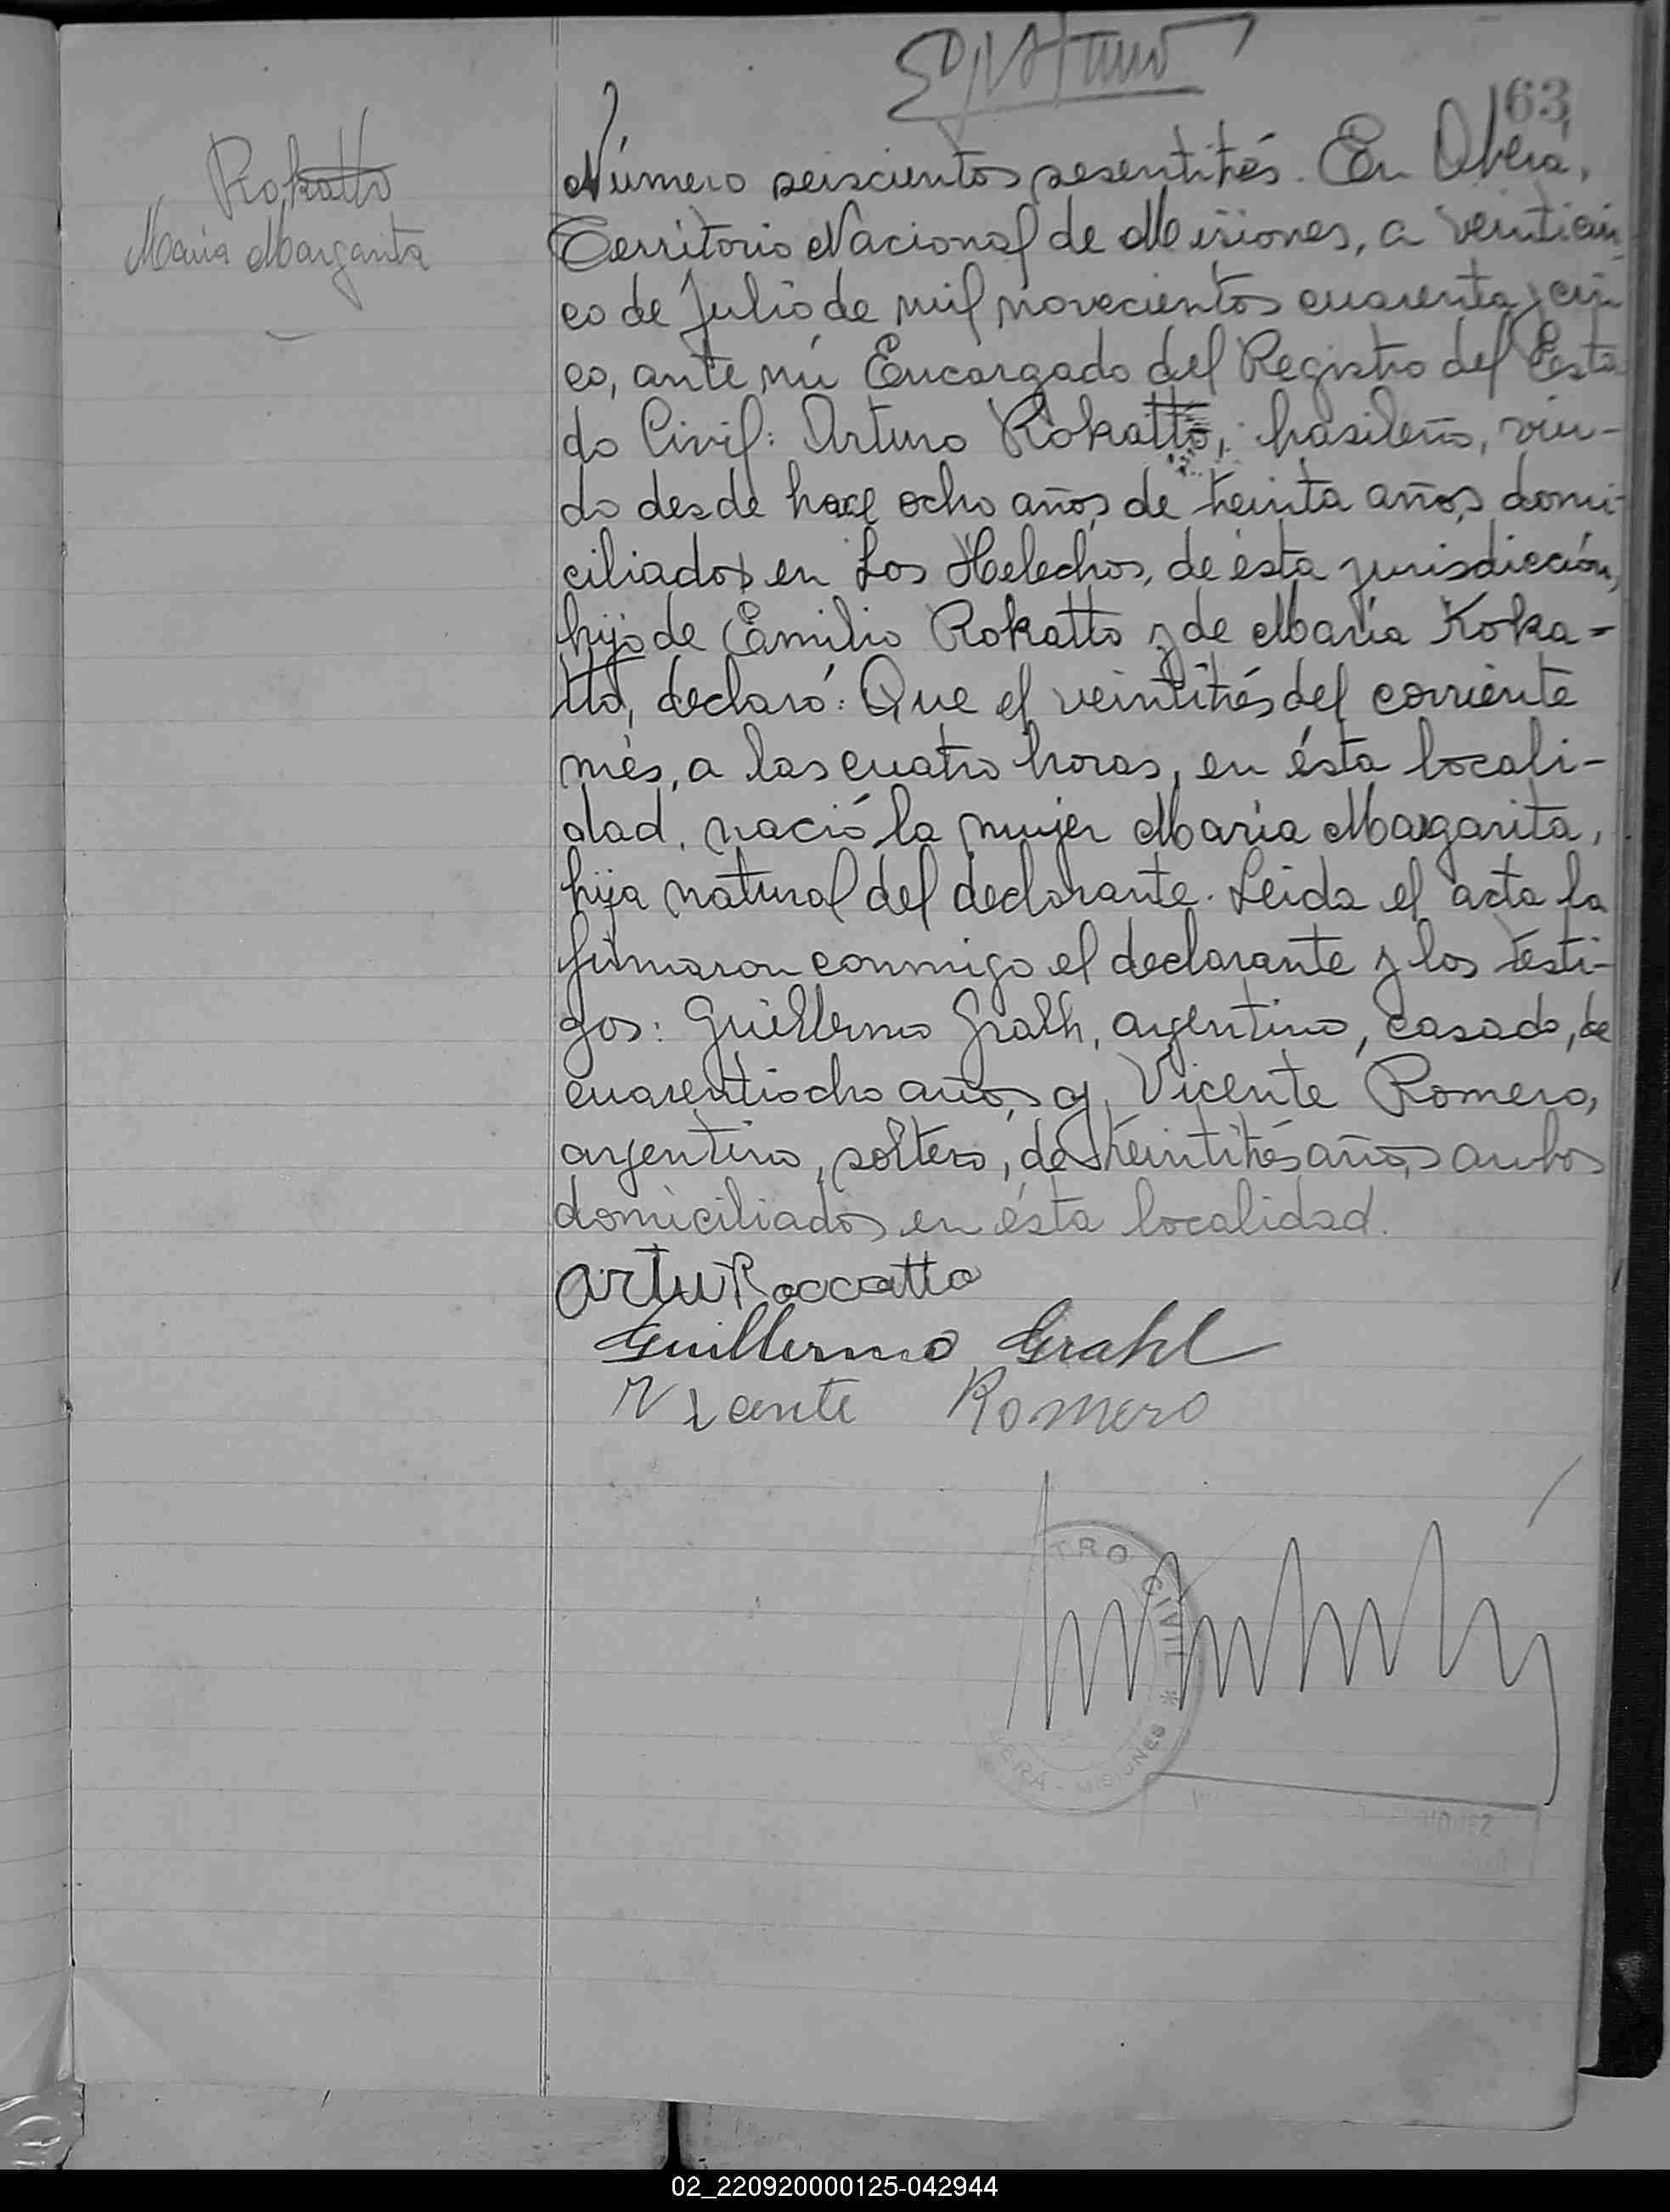 63
Rokatto
María Margarita
Número seiscientos sesentitrés. En Oberá,
Territorio Nacional de Misiones, a veinticin
co de Julio de mil novecientos cuarenta y cin
co, ante mí Encargado del Registro del Esta
do Civil: Arturo Rokatto, brasileño, viu-
do desde hace ocho años, de treinta años, domi-
ciliado en Los Helechos, de ésta jurisdicción,
hijo de Emilio Rokatto y de María Roka-
tto, declaró: Que el veintitrés del corriente
més, a las cuatro horas, en ésta locali-
dad, nació la mujer María Margarita,
hija natural del declarante. Leida el acta la
firmaron conmigo el declarante y los testi-
gos: Guillermo Gralh, argentino, casado, de
cuarentiocho años, y Vicente Romero,
argentino, soltero, de treintitrés años, ambos
domiciliados en ésta localidad.
Artur Roccatto
Guillermo Grahl
Vicente Romero
TRO CIVIL *
ERA - MISIONES
02_220920000125-042944